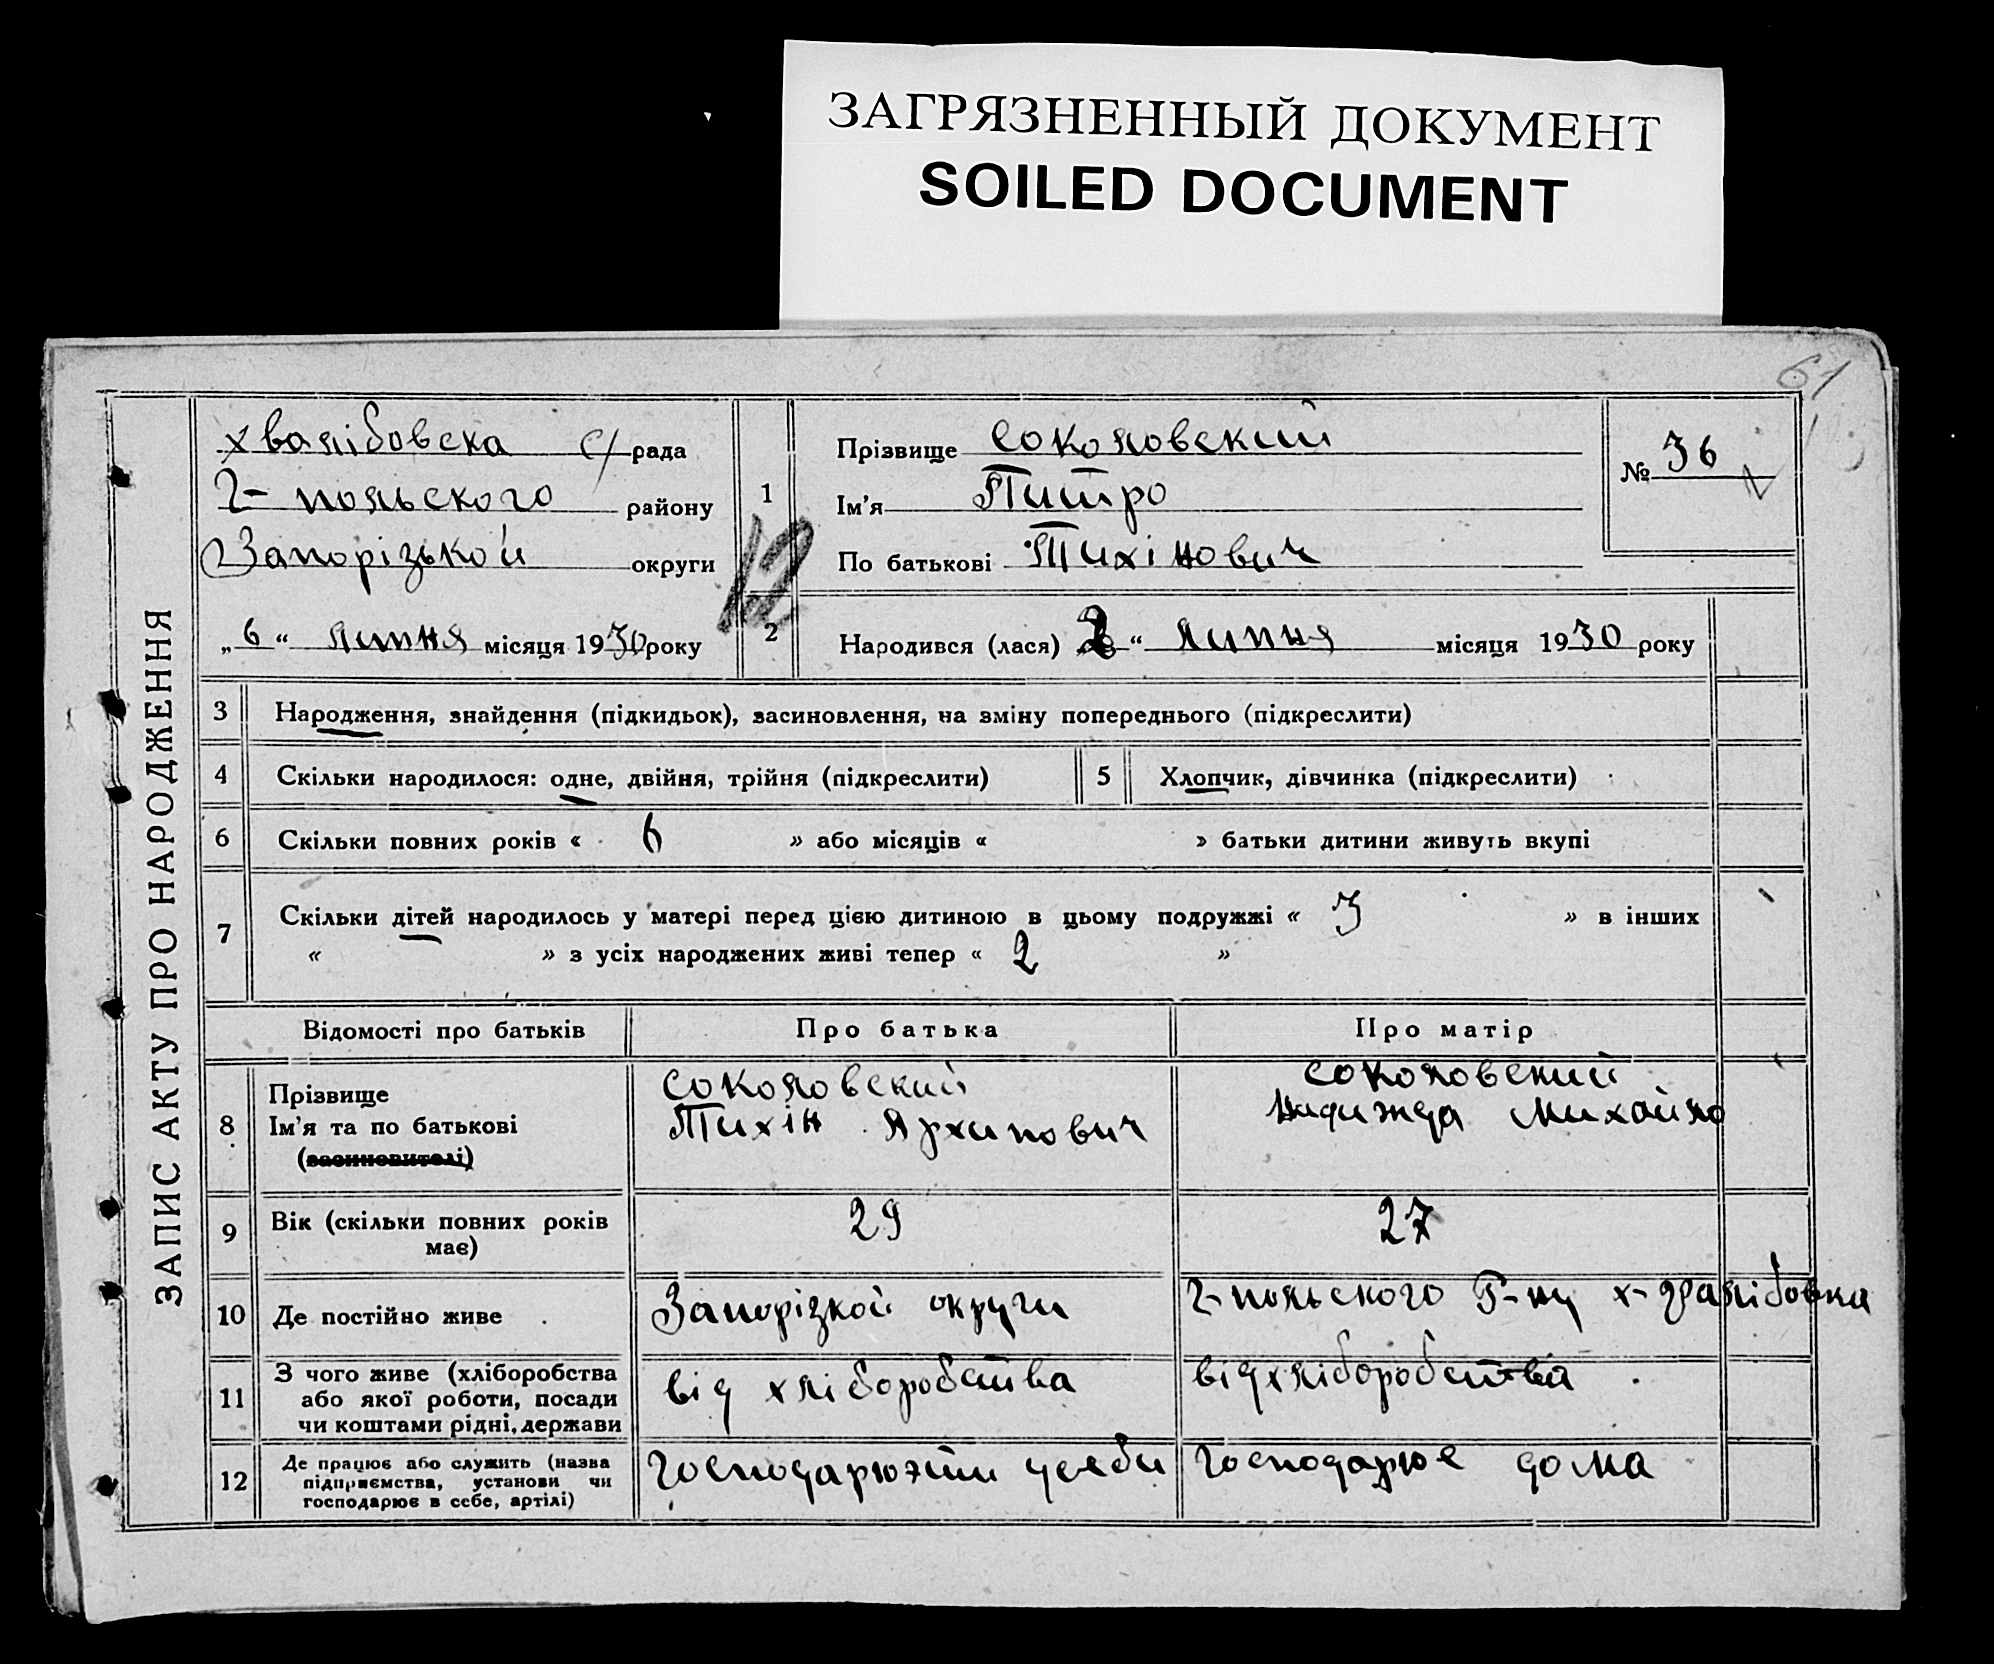 ЗАГРЯЗНЕННЫЙ ДОКУМЕНТ
SOILED DOCUMENT
61
ЗАПИС АКТУ ПРО НАРОДЖЕННЯ
Хвалібовска с/рада
Г-польского району
Запорізькой округи
„6“ липня місяця 1930 року
1
Прізвище Соколовский
Ім'я Питро
По батькові Тихінович
№ 36
2
Народився (лася) 2“ липня місяця 1930 року
3 Народження, знайдення (підкидьок), засиновлення, на зміну попереднього (підкреслити)
4 Скільки народилося: одне, двійня, трійня (підкреслити)
5 Хлопчик, дівчинка (підкреслити)
6 Скільки повних років « 6 » або місяців « » батьки дитини живуть вкупі
7 Скільки дітей народилось у матері перед цією дитиною в цьому подружжі « 3 » в інших
« » з усіх народжених живі тепер « 2 »
Відомості про батьків
Про батька
Про матір
8
Прізвище
Ім'я та по батькові
(засиновителі)
Соколовский
Тихін Архипович
Соколовский
Надижда Михайло
9
Вік (скільки повних років
має)
29
27
10 Де постійно живе
Запорізкой округи
Г-польского Р-ну х-Хвалібовка
11
З чого живе (хліборобства
або якої роботи, посади
чи коштами рідні, держави
від хліборобства
від хліборобства
12
Де працює або служить (назва
підприємства, установи чи
господарює в себе, артілі)
господарюэти
господарює дома